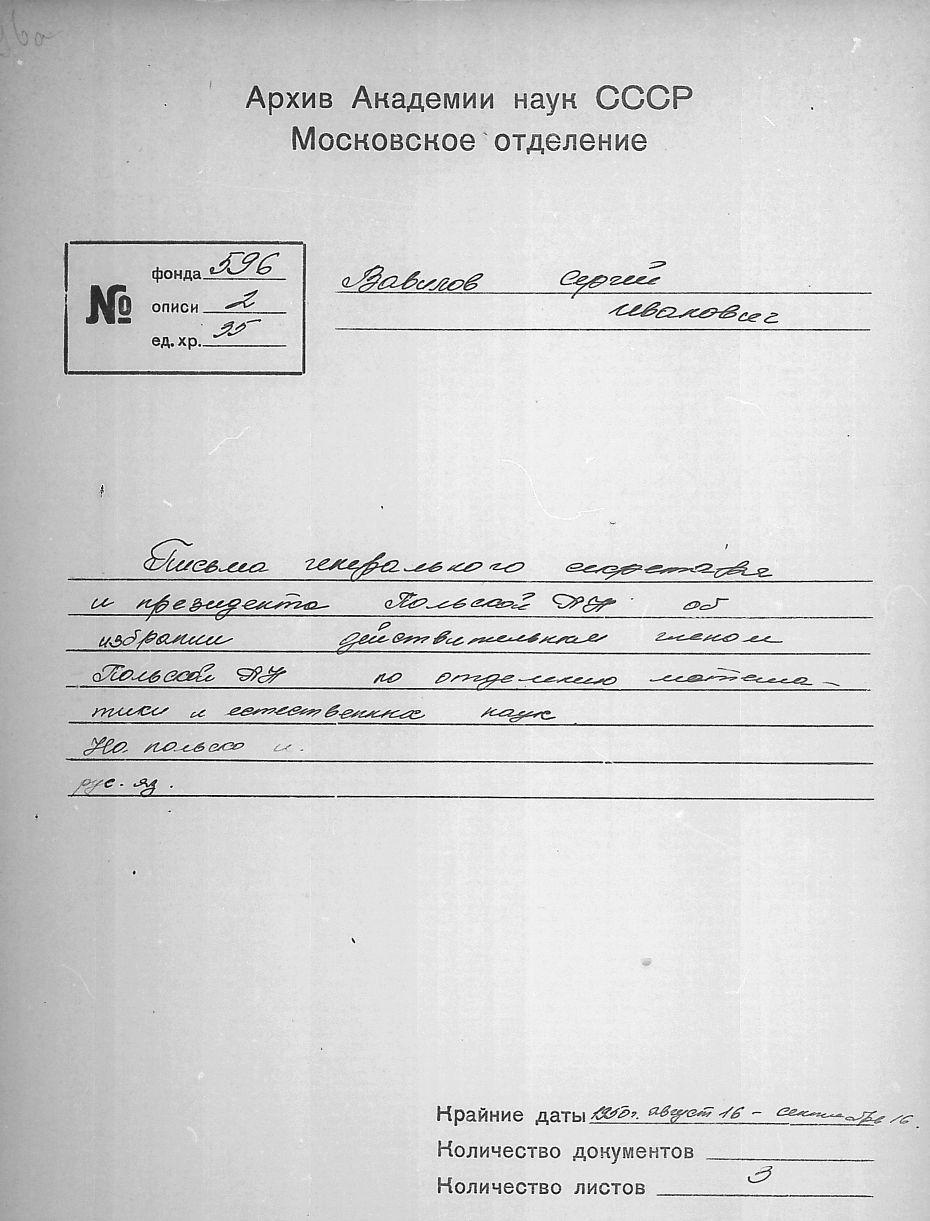 Архив Академии наук СССР
Московское отделение
№
фонда 596
описи 2
ед. хр. 95
Вавилов Сергей
Иванович
Письма генерального секретаря
и президента Польской АН об
избрании действительным членом
Польской АН по отделению матема-
тики и естественных наук
На польско и.
рус. яз.
Крайние даты 1950 г. август 16 - сентября 16.
Количество документов
Количество листов 3